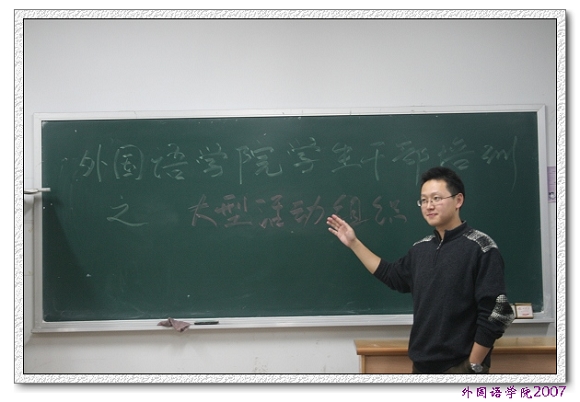 外国语学院学生干部培训
之 大型活动组织
外国语学院2007